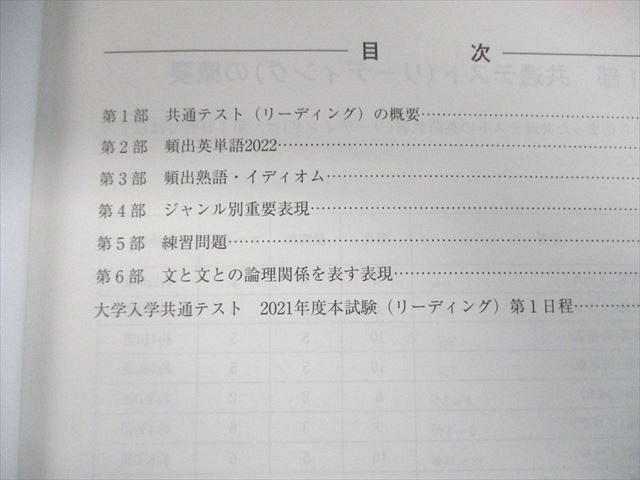 目 次
第1部 共通テスト（リーディング）の概要
第2部 頻出英単語2022
第3部 頻出熟語・イディオム
第4部 ジャンル別重要表現
第5部 練習問題
第6部 文と文との論理関係を表す表現
大学入学共通テスト 2021年度本試験（リーディング）第1日程